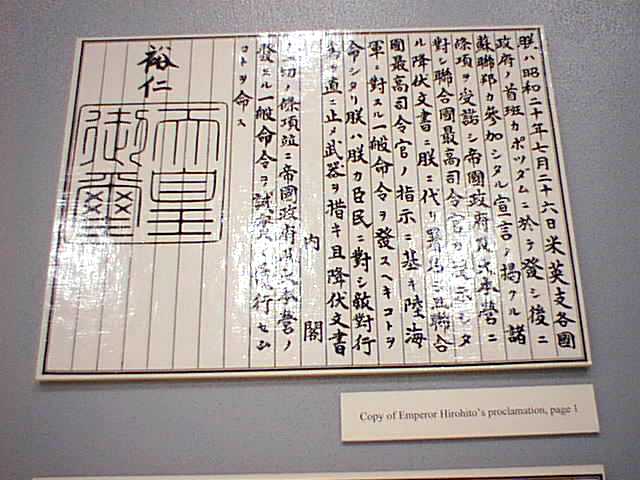 朕ハ昭和二十年七月二十六日米英支各國
政府ノ首班カポツダムニ於テ發シ後ニ
蘇聯邦カ參加シタル宣言ノ掲クル諸
條項ヲ受諾シ帝國政府及大本營ニ
對シ聯合國最高司令官カ提示シタ
ル降伏文書ニ朕ニ代リ署名シ且聯合
國最高司令官ノ指示ニ基キ陸海
軍ニ對スル一般命令ヲ發スヘキコトヲ
命シタリ朕ハ朕カ臣民ニ對シ敵對行
爲ヲ直ニ止メ武器ヲ措キ且降伏文書
内閣
ノ一切ノ條項竝ニ帝國政府及大本營ノ
發スル一般命令ヲ誠實ニ履行セム
コトヲ命ス
裕仁
天皇
御璽
Copy of Emperor Hirohito's proclamation, page 1